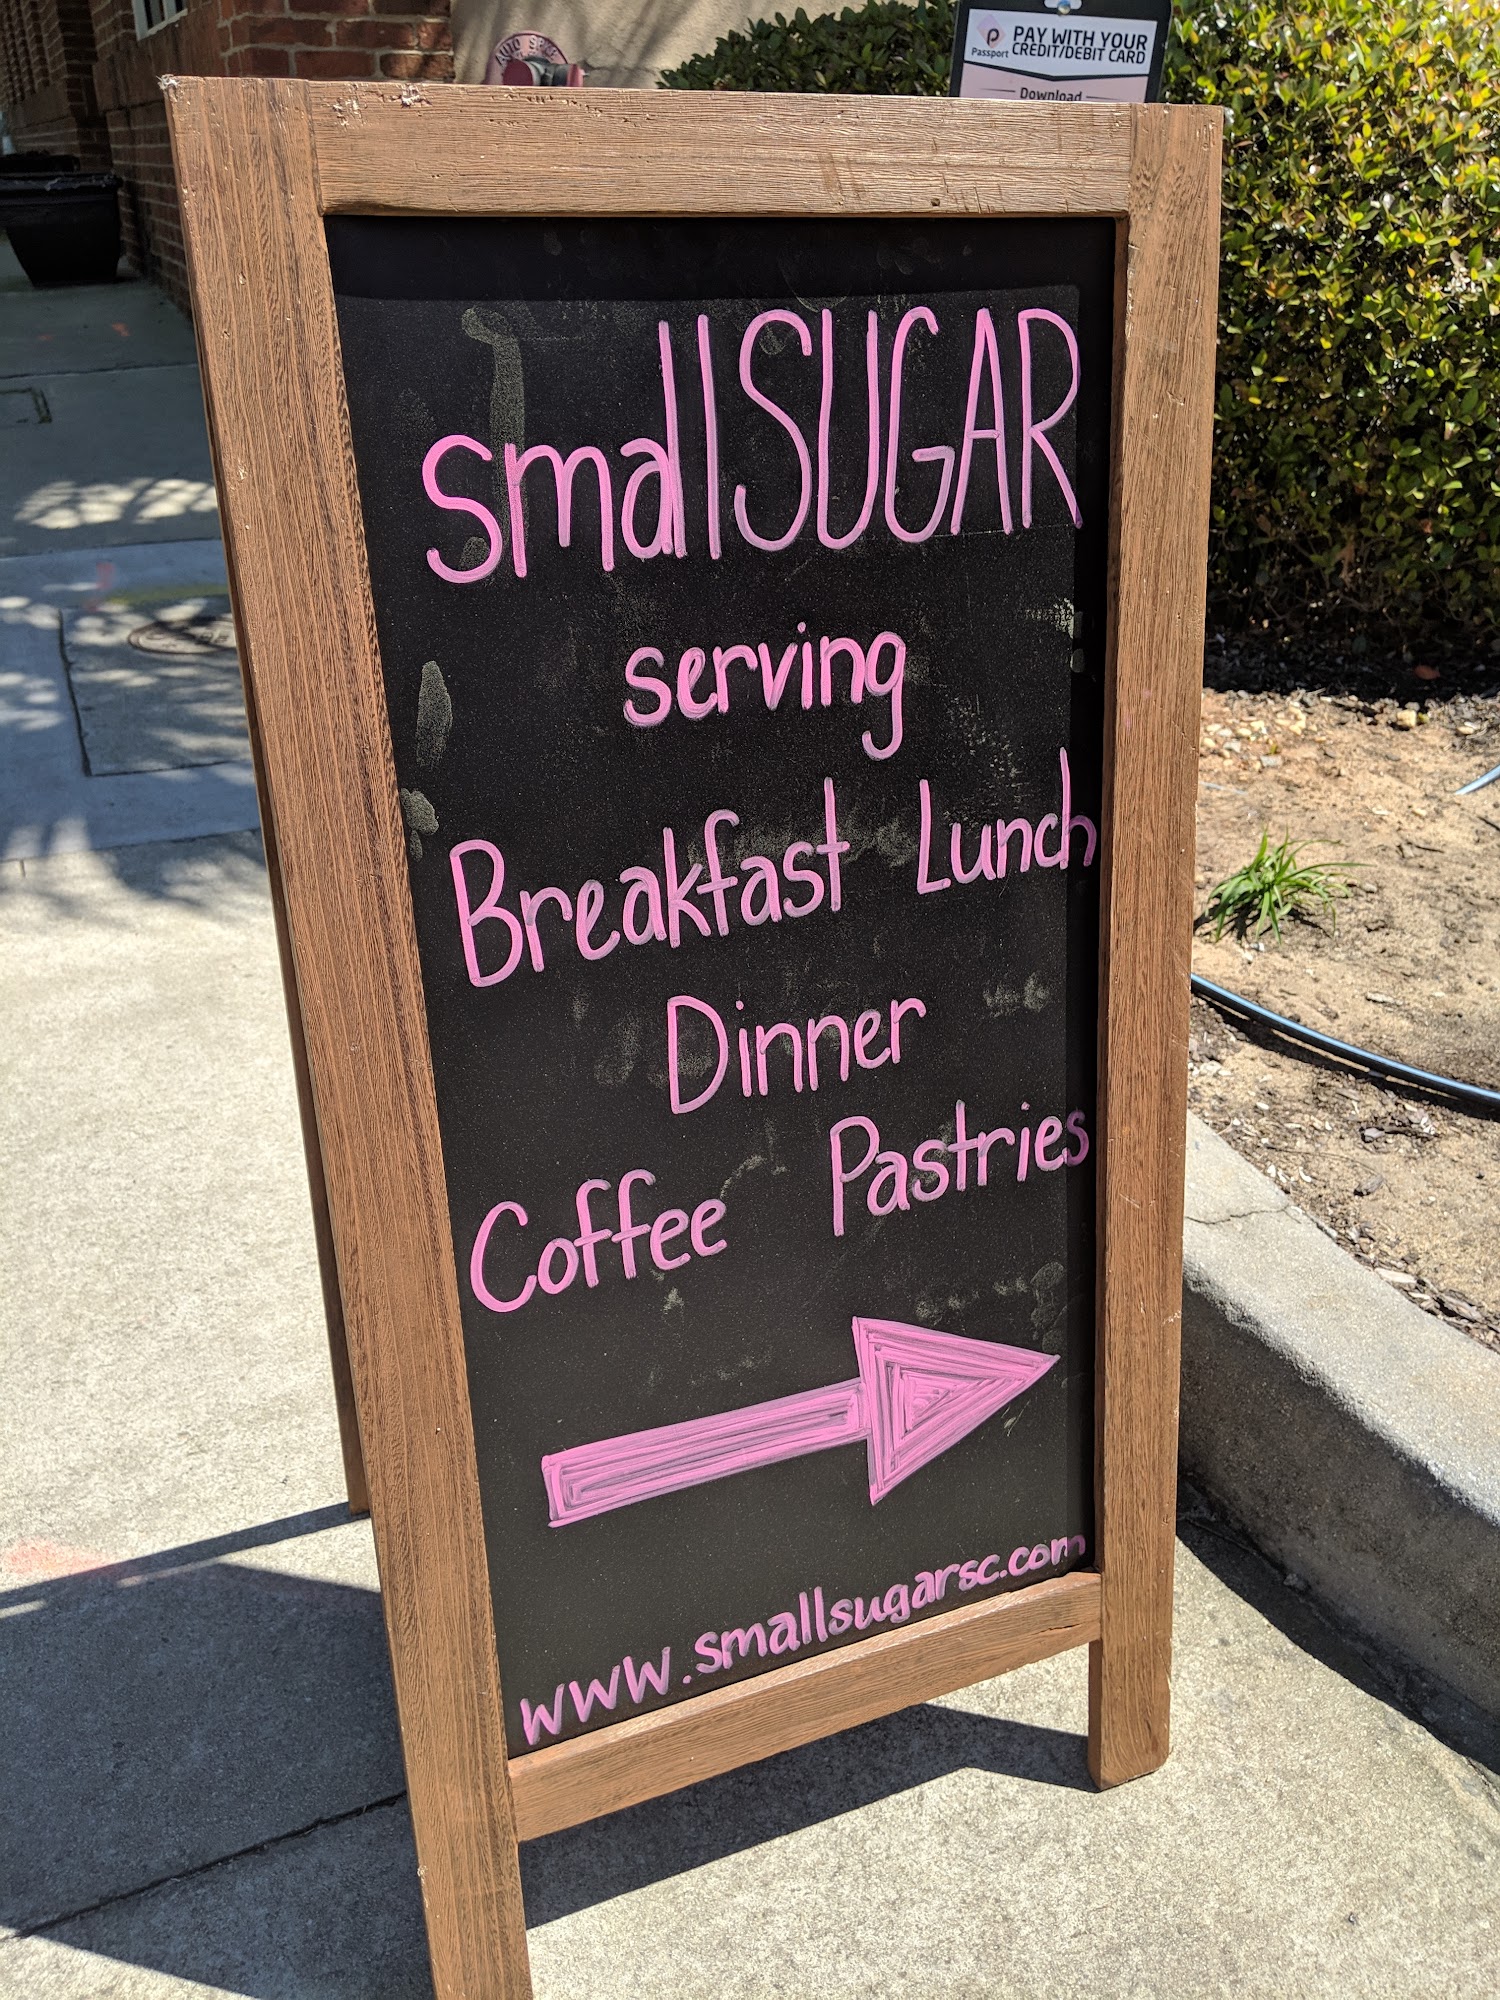 AUTO SP
Passport
PAY WITH YOUR
CREDIT/DEBIT CARD
Download
smallSUGAR
serving
Breakfast Lunch
Dinner
Coffee Pastries
www.smallsugarsc.com